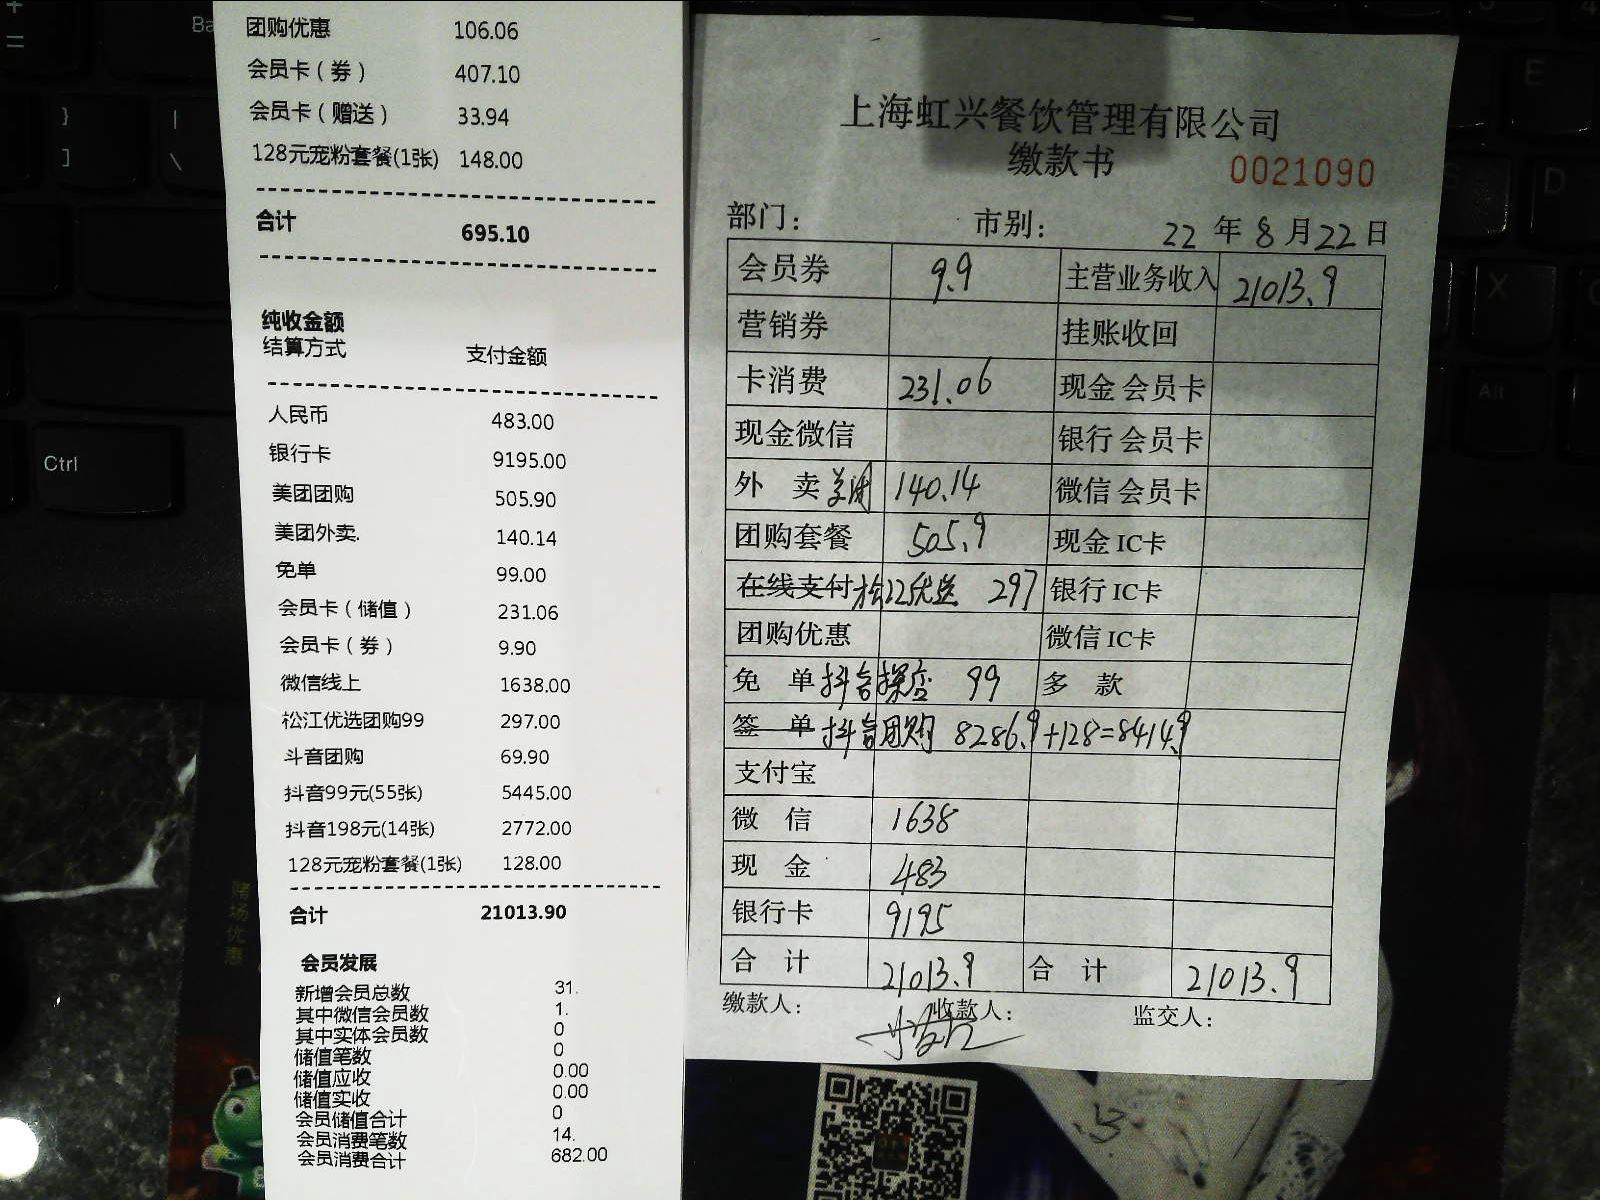 团购优惠 106.06
会员卡（券） 407.10
会员卡（赠送） 33.94
128元宠粉套餐(1张) 148.00
合计 695.10
纯收金额
结算方式 支付金额
人民币 483.00
银行卡 9195.00
美团团购 505.90
美团外卖. 140.14
免单 99.00
会员卡（储值） 231.06
会员卡（券） 9.90
微信线上 1638.00
松江优选团购99 297.00
斗音团购 69.90
抖音99元(55张) 5445.00
抖音198元(14张) 2772.00
128元宠粉套餐(1张) 128.00
合计 21013.90
会员发展
新增会员总数 31.
其中微信会员数 1.
其中实体会员数 0
储值笔数 0
储值应收 0.00
储值实收 0.00
会员储值合计 0
会员消费笔数 14.
会员消费合计 682.00
上海虹兴餐饮管理有限公司
缴款书 0021090
部门： 市别： 22 年 8 月 22 日
会员券 9.9 主营业务收入 21013.9
营销券 挂账收回
卡消费 231.06 现金 会员卡
现金微信 银行 会员卡
外 卖 美团 140.14 微信 会员卡
团购套餐 505.9 现金 IC卡
在线支付 松江优选 297 银行 IC卡
团购优惠 微信 IC卡
免 单 抖音探店 99 多 款
签 单 抖音团购 8286.9+128=8414.9
支付宝
微 信 1638
现 金 483
银行卡 9195
合 计 21013.9 合 计 21013.9
缴款人： 收款人： 监交人：
Ctrl
Alt
Ba
E
D
X
赌场优惠